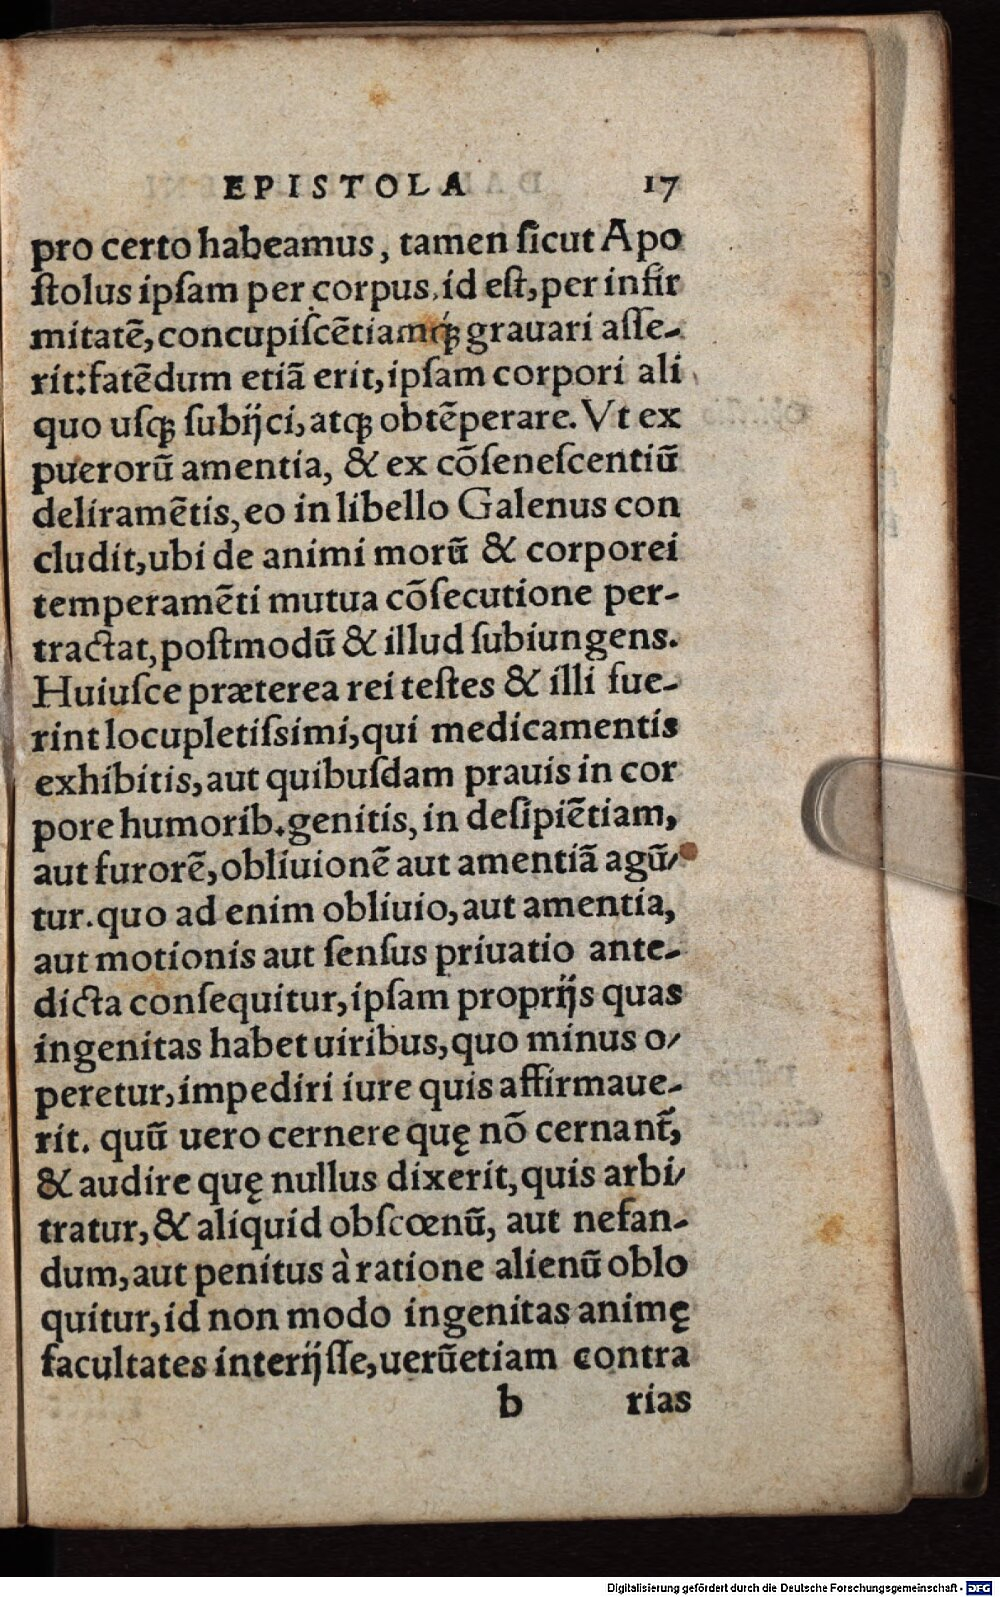 EPISTOLA 17
pro certo habeamus, tamen ſicut Apo
ſtolus ipſam per corpus, id eſt, per infir
mitatē, concupiſcētiamq́ꝫ grauari aſſe-
rit: fatēdum etiā erit, ipſam corpori ali
quo uſqꝫ ſubijci, atqꝫ obtēperare. Vt ex
puerorū amentia, & ex cōſeneſcentiū
deliramētis, eo in libello Galenus con
cludit, ubi de animi morū & corporei
temperamēti mutua cōſecutione per-
tractat, poſtmodū & illud ſubiungens.
Huiuſce præterea rei teſtes & illi fue-
rint locupletiſsimi, qui medicamentis
exhibitis, aut quibuſdam prauis in cor
pore humorib. genitis, in deſipiētiam,
aut furorē, obliuionē aut amentiā agū/
tur. quo ad enim obliuio, aut amentia,
aut motionis aut ſenſus priuatio ante-
dicta conſequitur, ipſam proprijs quas
ingenitas habet uiribus, quo minus o/
peretur, impediri iure quis affirmaue-
rit. quū uero cernere quę nō cernant̃,
& audire quę nullus dixerit, quis arbi/
tratur, & aliquid obſcœnū, aut nefan-
dum, aut penitus à ratione alienū oblo
quitur, id non modo ingenitas animę
facultates interijſſe, uerūetiam contra
b rias
Digitalisierung gefördert durch die Deutsche Forschungsgemeinschaft - DFG